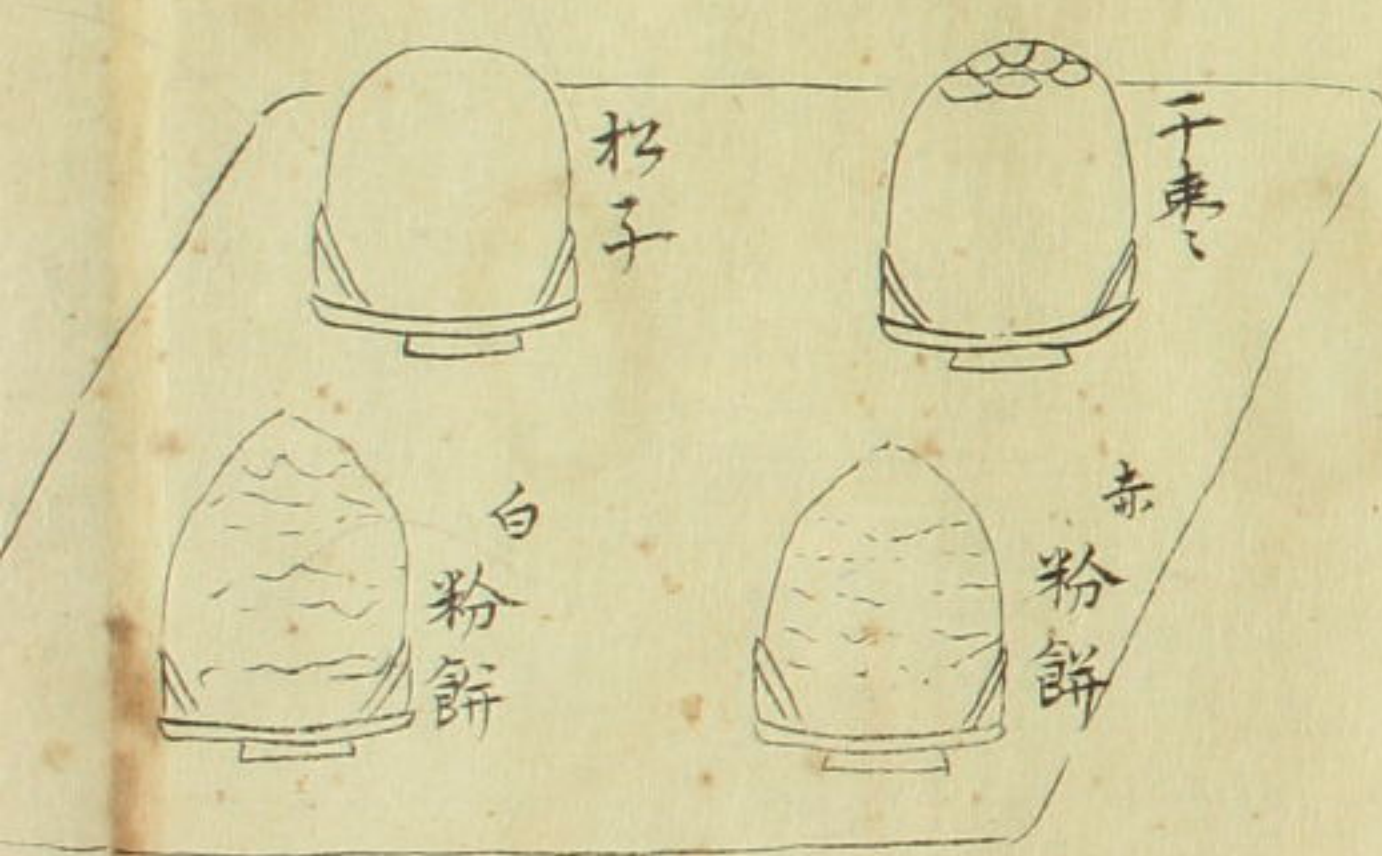 干枣
松子
赤粉餅
白粉餅